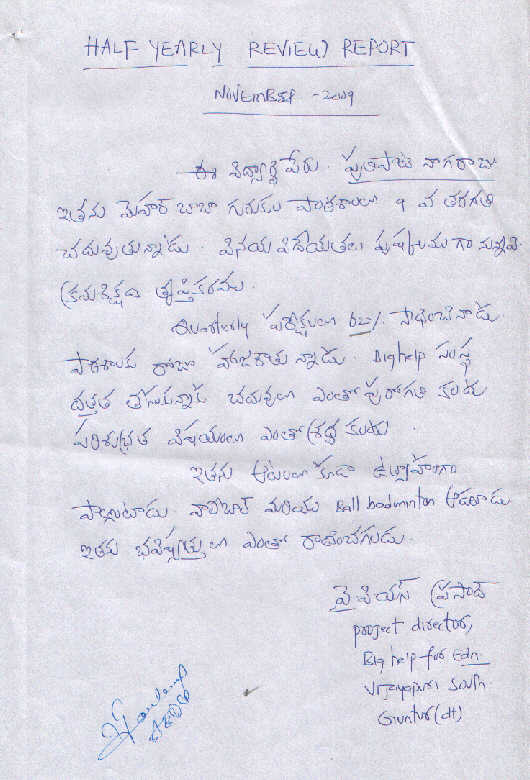 HALF YEARLY REVIEW REPORT
NOVEMBER - 2009
ఈ విద్యార్థి పేరు. ప్రత్తిపాటి నాగరాజు
ఇతను మెహర్ బాబా గురుకుల పాఠశాలలో 9 వ తరగతి
చదువుతున్నాడు. వినయ విధేయతలు పుష్కలముగా నున్నవి
క్రమశిక్షణ తృప్తికరము.
Quarterly పరీక్షలలో 62% సాధించినాడు.
పాఠశాలకు రోజూ హాజరవుతున్నాడు. Bighelp సంస్థ
దత్తత తీసుకున్నాక చదువులో ఎంతో పురోగతి కలదు
పరిశుభ్రత విషయంలో ఎంతో శ్రద్ధ కలదు.
ఇతను ఆటలలో కూడా ఉత్సాహంగా
పాల్గొంటాడు. వాలీబాల్ మరియు Ball badminton ఆడతాడు
ఇతను భవిష్యత్తులో ఎంతో రాణించగలడు.
వై పియస్ ప్రసాద్
project director,
Big help for Edn.
Vijayapuri South.
Guntur (dt)